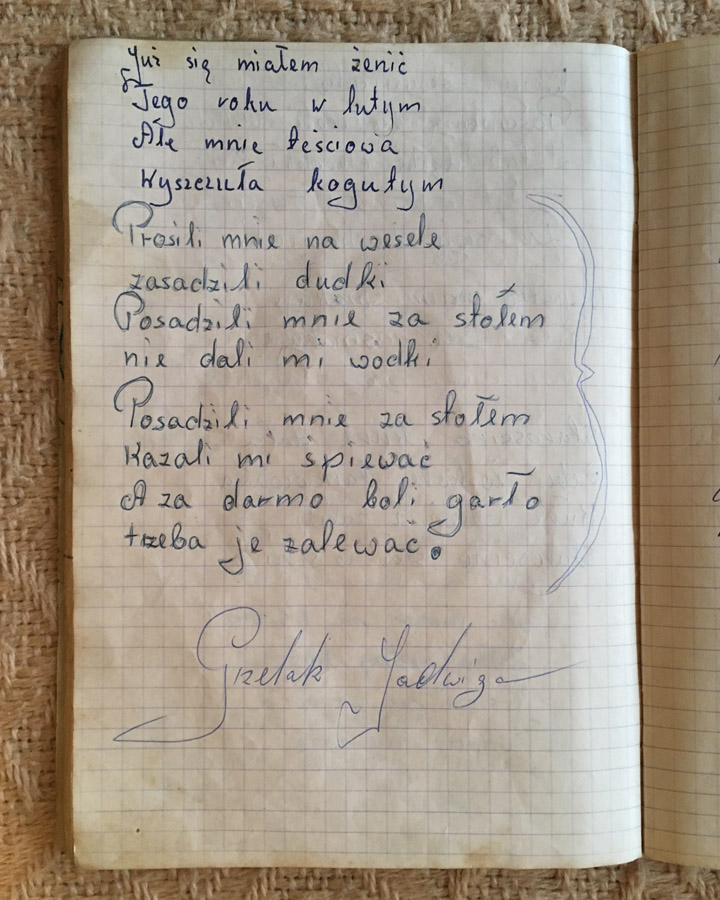 Już się miałem żenić
Tego roku w lutym
Ale mnie teściowa
Wyszczuła kogutym
Prosili mnie na wesele
zasadzili dudki
Posadzili mnie za stołem
nie dali mi wodki
Posadzili mnie za stołem
Kazali mi śpiewać
A za darmo boli garło
trzeba je zalewać.
Grzelak Jadwiga